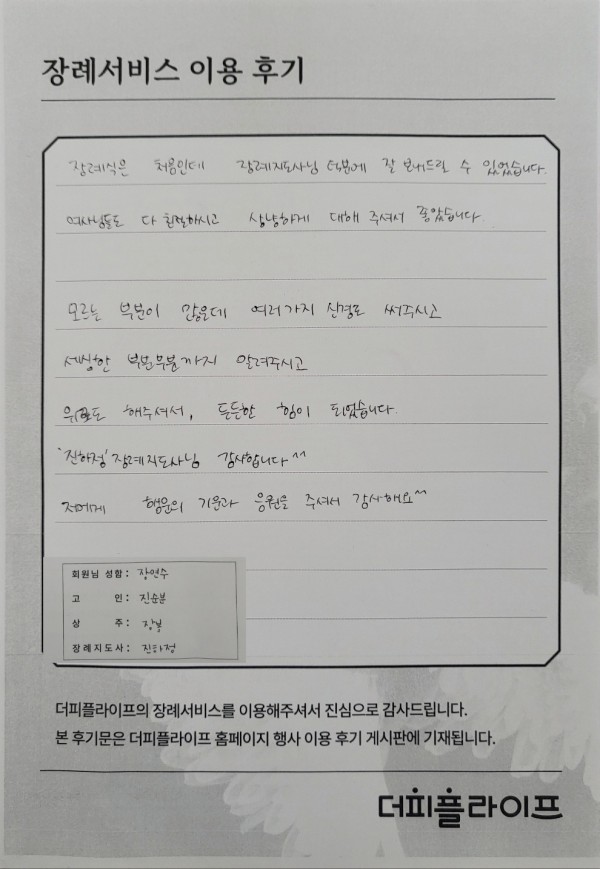 장례서비스 이용 후기
장례식은 처음인데 장례지도사님 덕분에 잘 보내드릴 수 있었습니다.
여사님들도 다 친절하시고 상냥하게 대해 주셔서 좋았습니다.
모르는 부분이 많은데 여러가지 신경도 써주시고
세심한 부분부분까지 알려주시고
위로도 해주셔서, 든든한 힘이 되었습니다.
'진하정' 장례지도사님 감사합니다^^
저에게 행운의 기운과 응원을 주셔서 감사해요^^
회원님 성함 : 장연수
고 인 : 진순분
상 주 : 장봉
장례지도사 : 진하정
더피플라이프의 장례서비스를 이용해주셔서 진심으로 감사드립니다.
본 후기문은 더피플라이프 홈페이지 행사 이용 후기 게시판에 기재됩니다.
더피플라이프